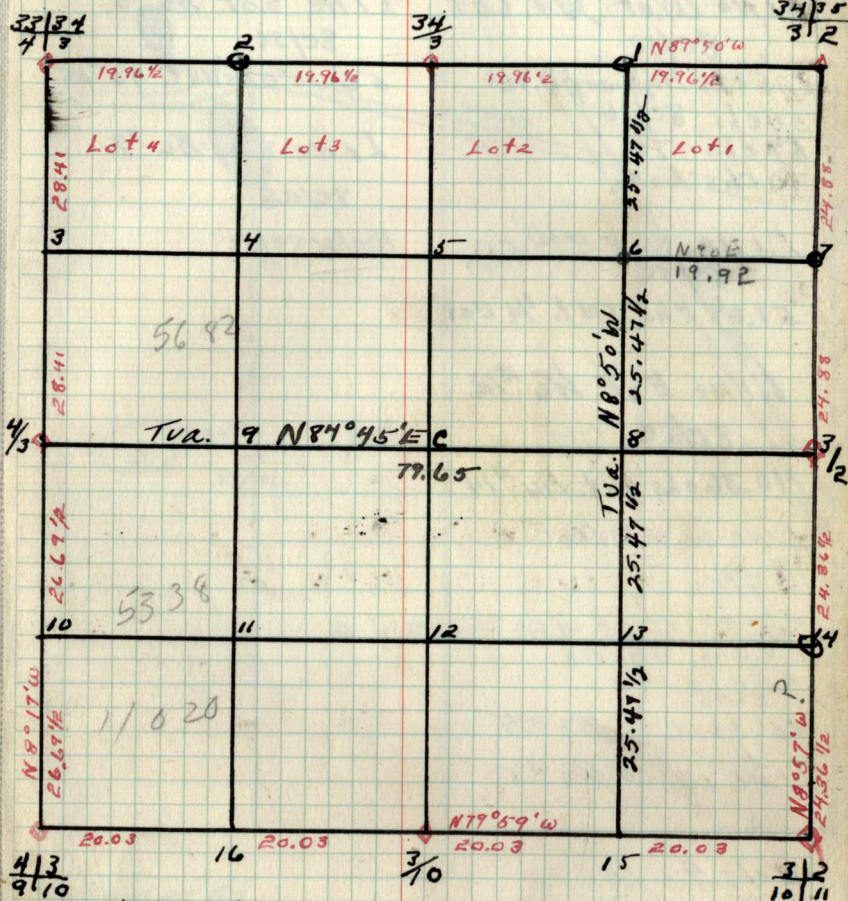 33|34 34 34|35
4|3 2 3 1 3|2
N89°50'W
19.96½ 19.96½ 19.96'2 19.96½
Lot 4 Lot 3 Lot 2 Lot 1
28.41 25.47½ 24.88
3 4 5 6 7
N90E
19.92
56 82
28.41 Tva. N8°50'W 25.47½ 24.88
4/3 Tva. 9 N84°45'E C 8 3/2
79.65
26.69½ 25.47½ 24.36½
53 38
10 11 12 13 14
110 20
?
N8°17'W 26.69½ 25.47½ N8°57'W 24.36½
N79°59'W
20.03 20.03 20.03 20.03
4|3 16 3/10 15 3|2
9|10 10|11